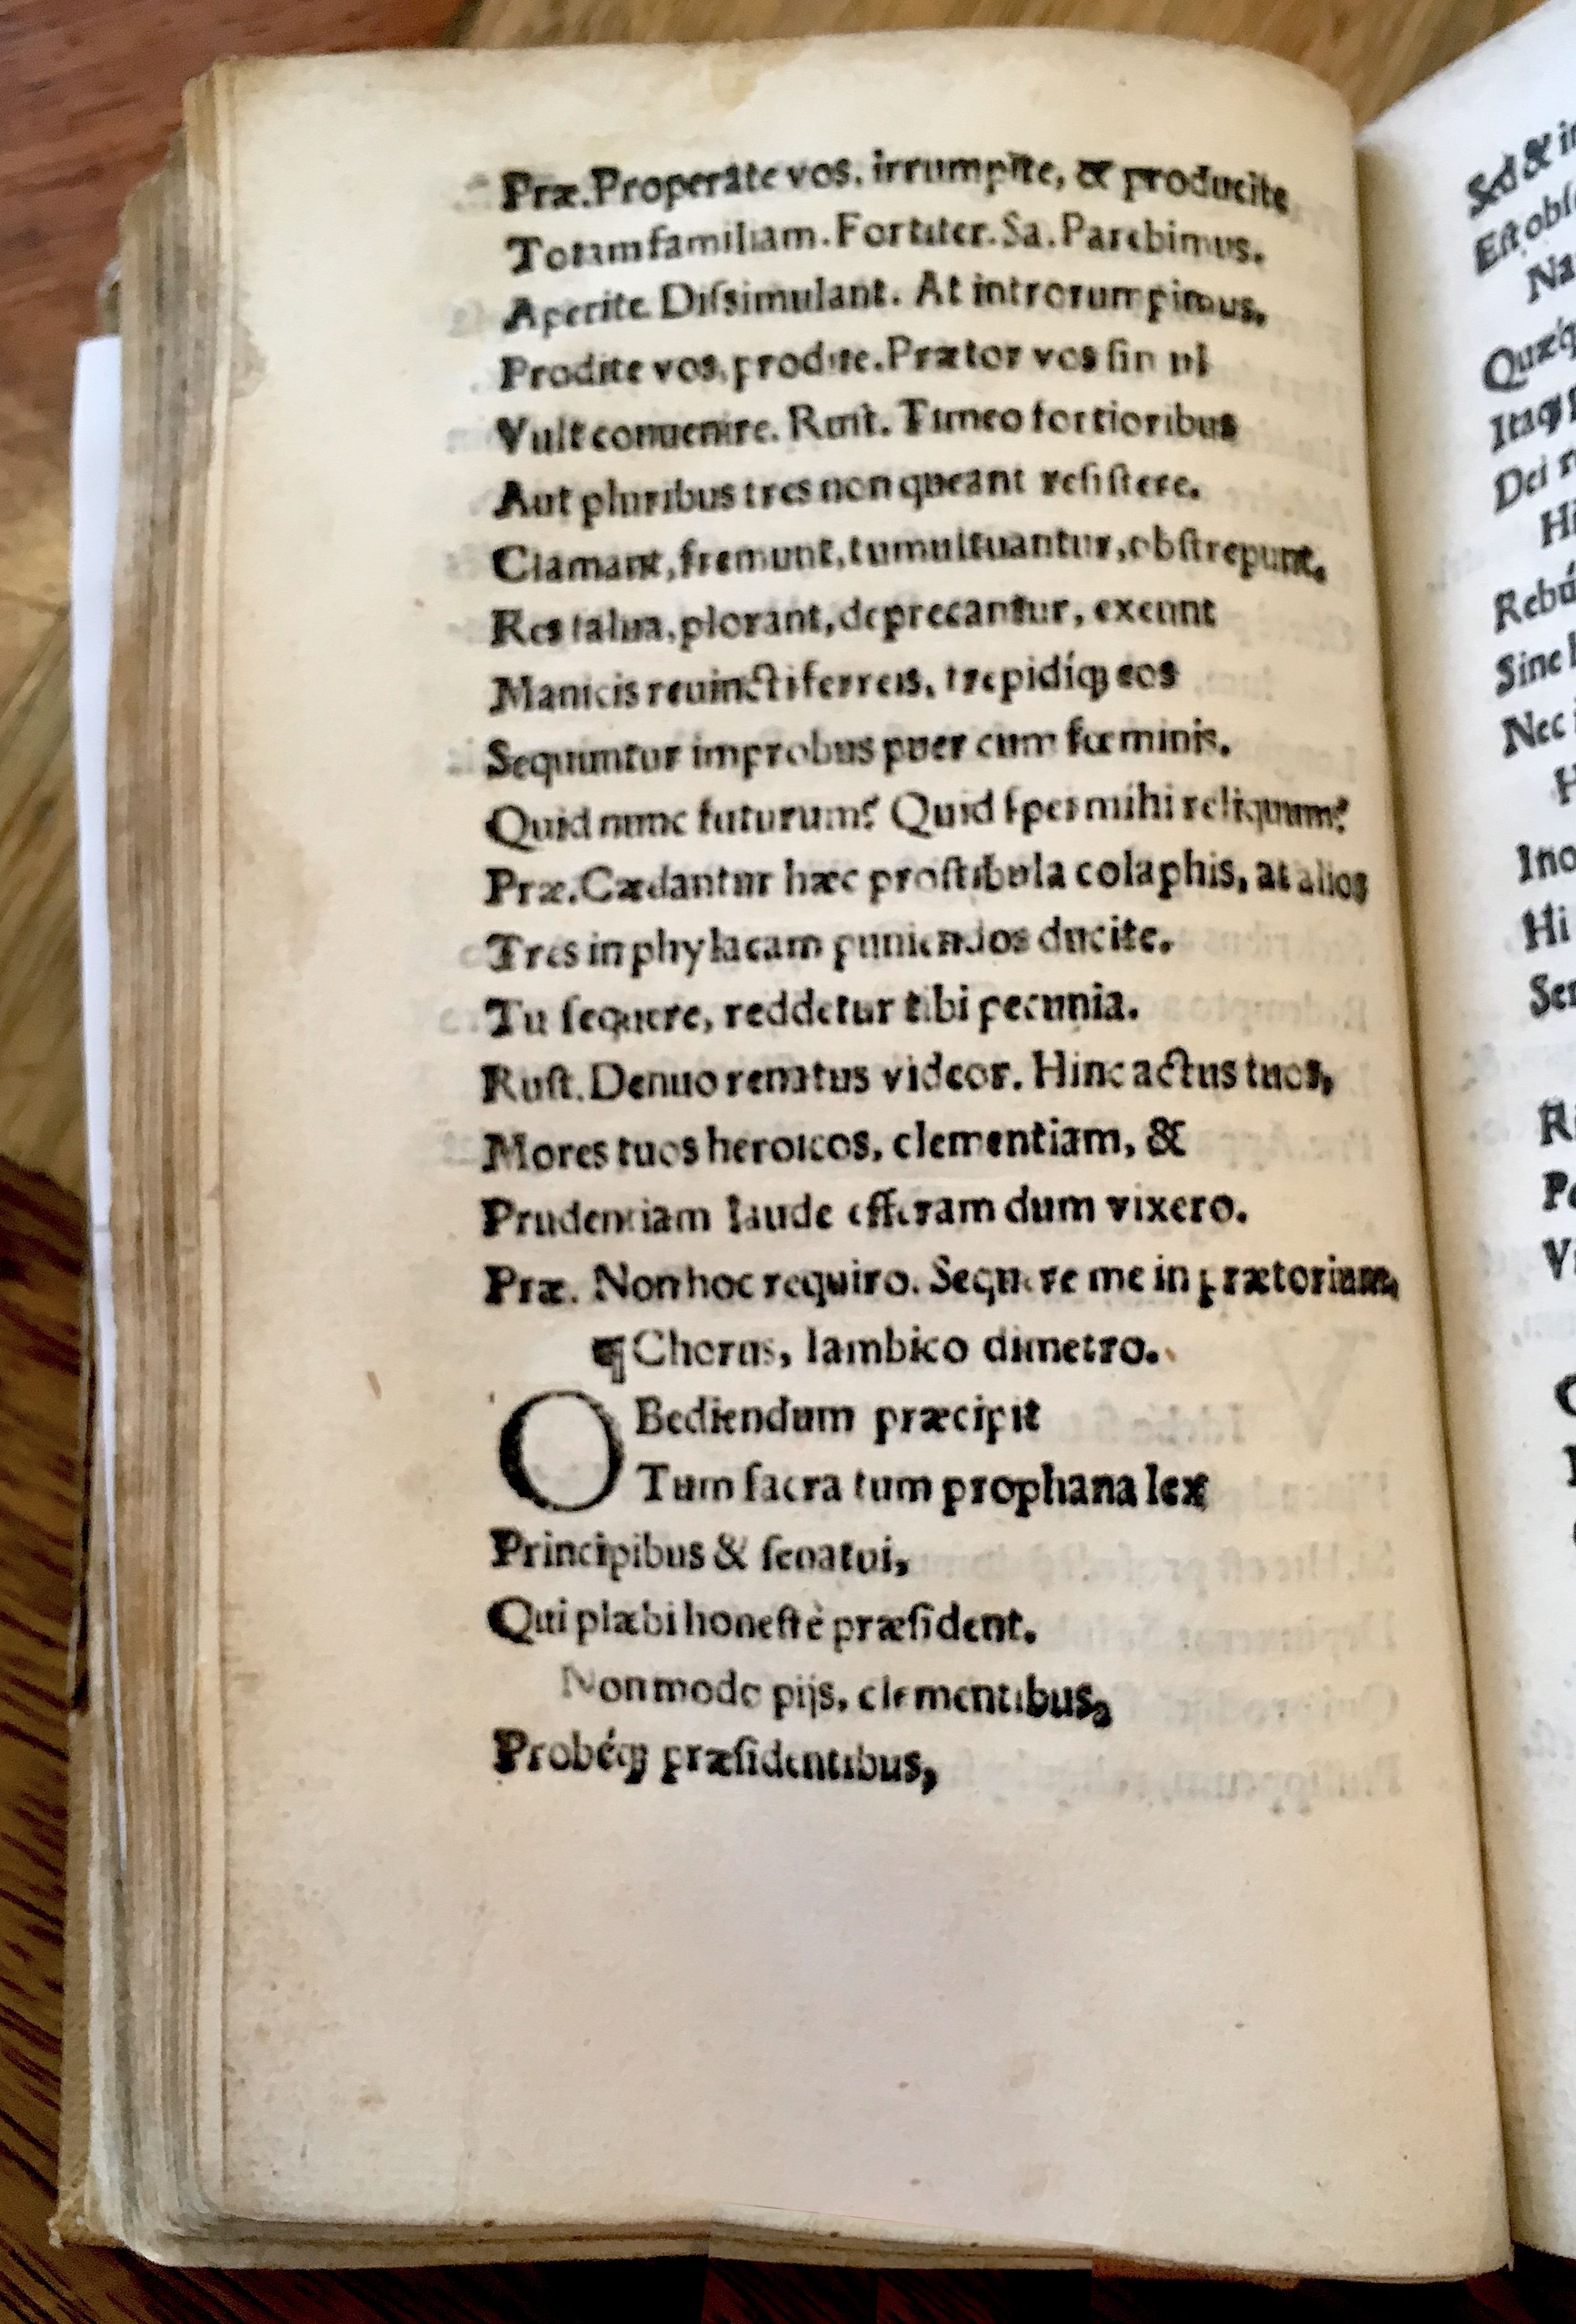 Præ. Properate vos, irrumpite, & producite
Totam familiam. Fortiter. Sa. Parebimus.
Aperite. Dissimulant. At introrumpimus.
Prodite vos, prodite. Prætor vos simul
Vult conuenire. Rust. Timeo fortioribus
Aut pluribus tres non queant resistere.
Clamant, fremunt, tumultuantur, obstrepunt.
Res salua, plorant, deprecantur, exeunt
Manicis reuincti ferreis, trepidíq; eos
Sequuntur improbus puer cum fœminis.
Quid nunc futurum? Quid spei mihi reliquum?
Præ. Cædantur hæc prostibula colaphis, at alios
Tres in phylacam puniendos ducite.
Tu sequere, reddetur tibi pecunia.
Rust. Denuo renatus videor. Hinc actus tuos,
Mores tuos heroicos, clementiam, &
Prudentiam laude efferam dum vixero.
Præ. Non hoc requiro. Sequere me in prætorium,
¶ Chorus, Iambico dimetro.
OBediendum præcipit
Tum sacra tum prophana lex
Principibus & senatui,
Qui plæbi honestè præsident.
Non modo pijs, clementibus,
Probéq; præsidentibus,
Sed & 
Na
Dei
Hi
Sine
Nec
Hi